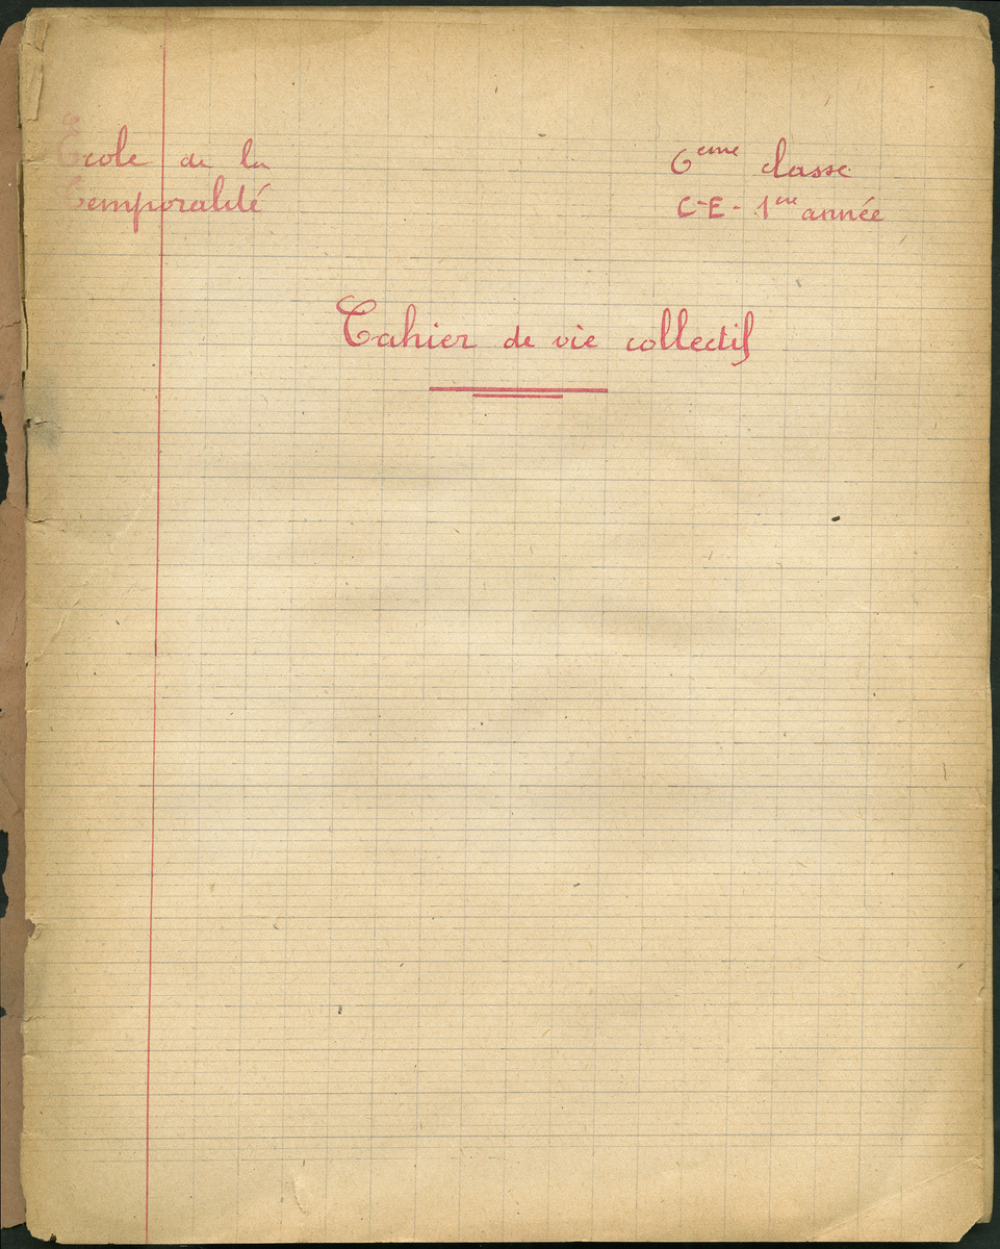 École de la
Temporalité
6ème classe
C-E- 1ère année
Cahier de vie collectif